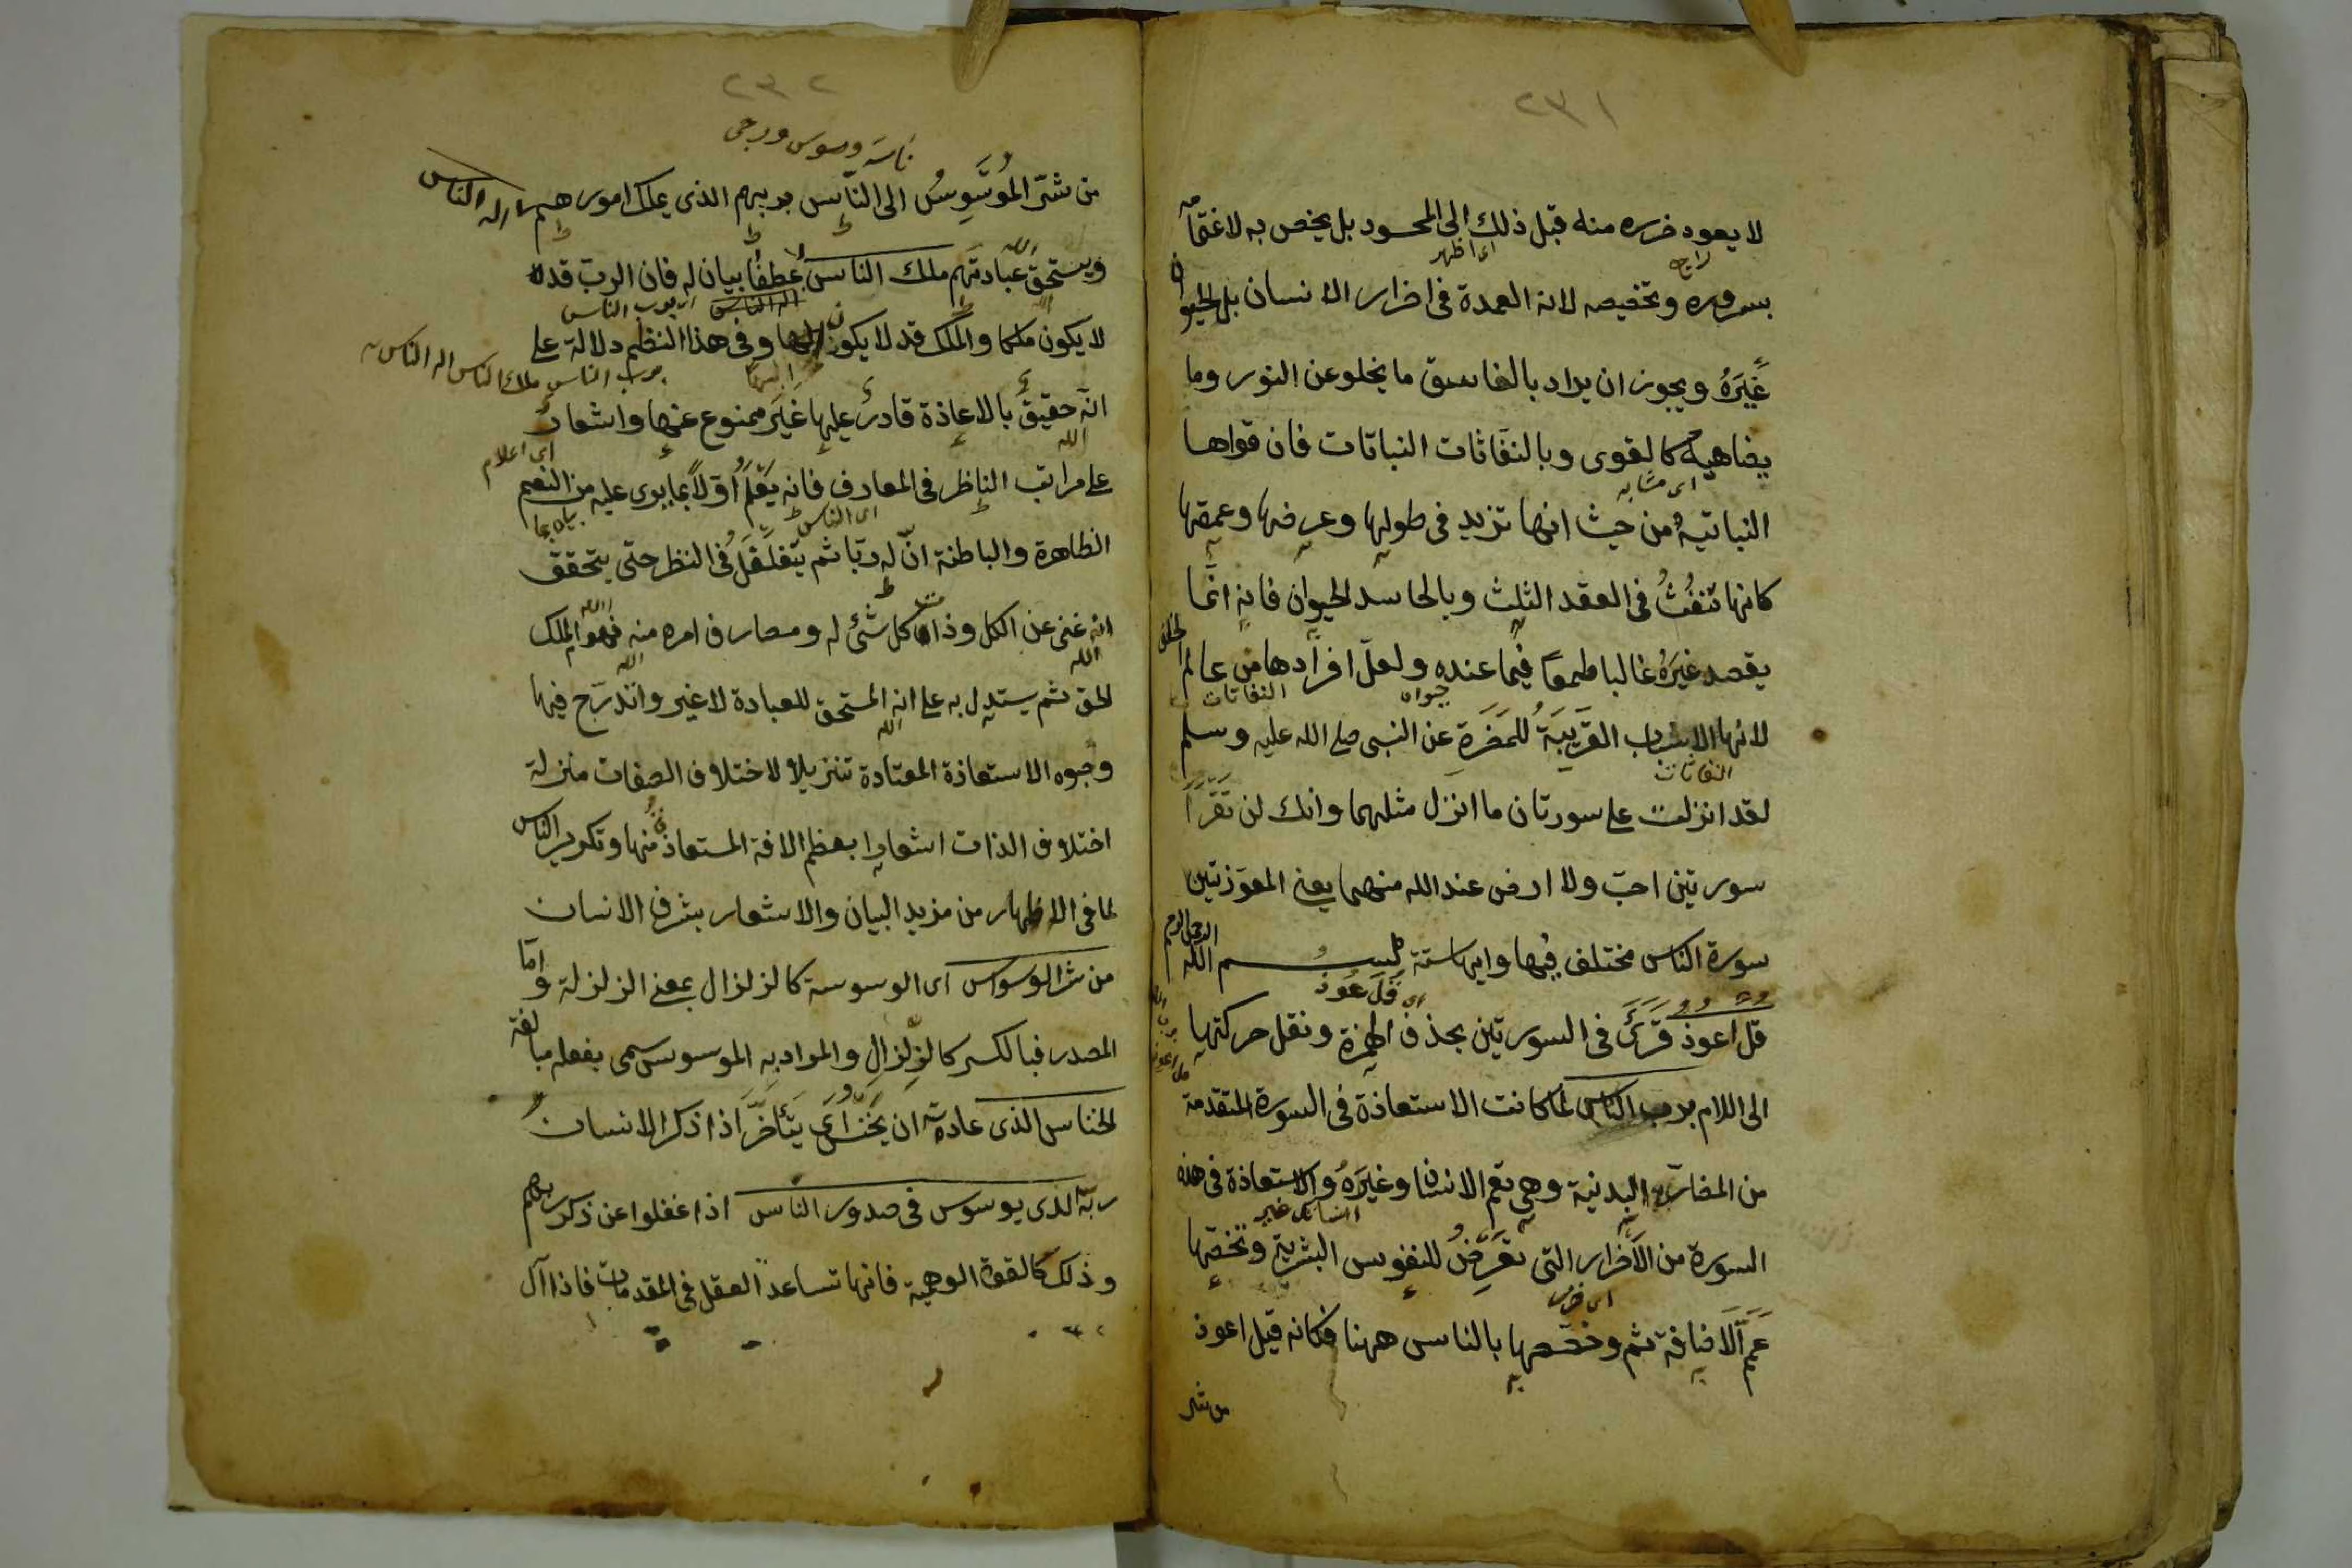 ٢٣١
لا يعود ضرره منه قبل ذلك الى المحسود بل يخص به لاغتمامه
بسروره وتخصيصه لانه العمدة فى اضرار الانسان بل الحيوان
غَيْرَهُ ويجوز ان يراد بالغاسق ما يخلو عن النور وما
يضاهيه كالقوى وبالنفاثات النباتات فان قواها
اى مشابه
النباتية من حيث انها تزيد فى طولها وعرضها وعمقها
كانها تنفُثُ فى العقد الثلث وبالحاسد الحيوان فانه انما
يقصد غيرَهُ غالبا طمعا فيما عنده ولعلّ افرادها من عالم الخلق
النفاثات
لانها الاسباب القريبَةُ للمَضَرةِ عن النبى صلى الله عليه وسلم
النفاثات
لقد انزلت على سورتان ما انزل مثلهما وانك لن تَقْرَأَ
سورتين احبّ ولا ارضى عند الله منهما يعنى المعوّذتين
سورة الناس مختلف فيها وايها ستة بسم الله الرحمن الرحيم
اى قُلَ عُوذ
قل اعوذ قُرِئَ فى السورتين بحذف الهمزة ونقل حركتها
الى اللام برب الناس لما كانت الاستعاذة فى السورة المتقدمة
من المضارّ البدنية وهى تعم الانسان وغيرَهُ والاستعاذة فى هذه
السورة من الاَضْرار التى تَعْرِضُ للنفوس البشرية وتخصّها
عَمَّ الاَضافة ثم وخصصها بالناس ههنا فكانه قيل اعوذ
من شر
٢٣٢
من شرّ المُوَسْوِسُ الى النّاس بربهم الذى يملك امورهم اله الناس
ويستحقُ عبادتهم ملك الناس عطفا بيان له فان الرب قد
اله الناس
لا يكون ملكا والملك قد لا يكون الها وفى هذا النظم دلالة على
برب الناس ملك الناس اله الناس
انه حقيقٌ بالاعاذة قادرٌ عليها غيرَ ممنوع عنها واشعارٌ
الله
اى اعلام
على مراتب الناظر فى المعارف فانه يَعْلَمُ اولاً بما يرى عليه من النعم
اى الناس
الظاهرة والباطنة انّ له ربّا ثم يتغلغَلُ فى النظر حتى يتحقق
انه غنى عن الكل وذات كل شئ له ومصارف امره منه فهو الملك
الله
الحق ثم يستدل به على انه المستحق للعبادة لا غير واندرج فيها
الله
وجوه الاستعاذة المعتادة تنزيلا لاختلاف الصفات منزلة
اختلاف الذات اشعارا بعظم الافة المستعاذ منها وتكرير الناس
لما فى الاظهار من مزيد البيان والاشعار بشرف الانسان
من شر الوسواس اى الوسوسة كالزلزال بمعنى الزلزلة واما
المصدر فبالكسر كالزِلزال والمراد به الموسوس سمى بفعله مبالغة
الخناس الذى عادته ان يَخْنُسُ اى يتَأخَّرَ اذا ذكر الانسان
ربّه الذى يوسوس فى صدور الناس اذا غفلوا عن ذكر ربهم
وذلك كالقوة الوهمية فانها تساعد العقل فى المقدمات فاذا آل